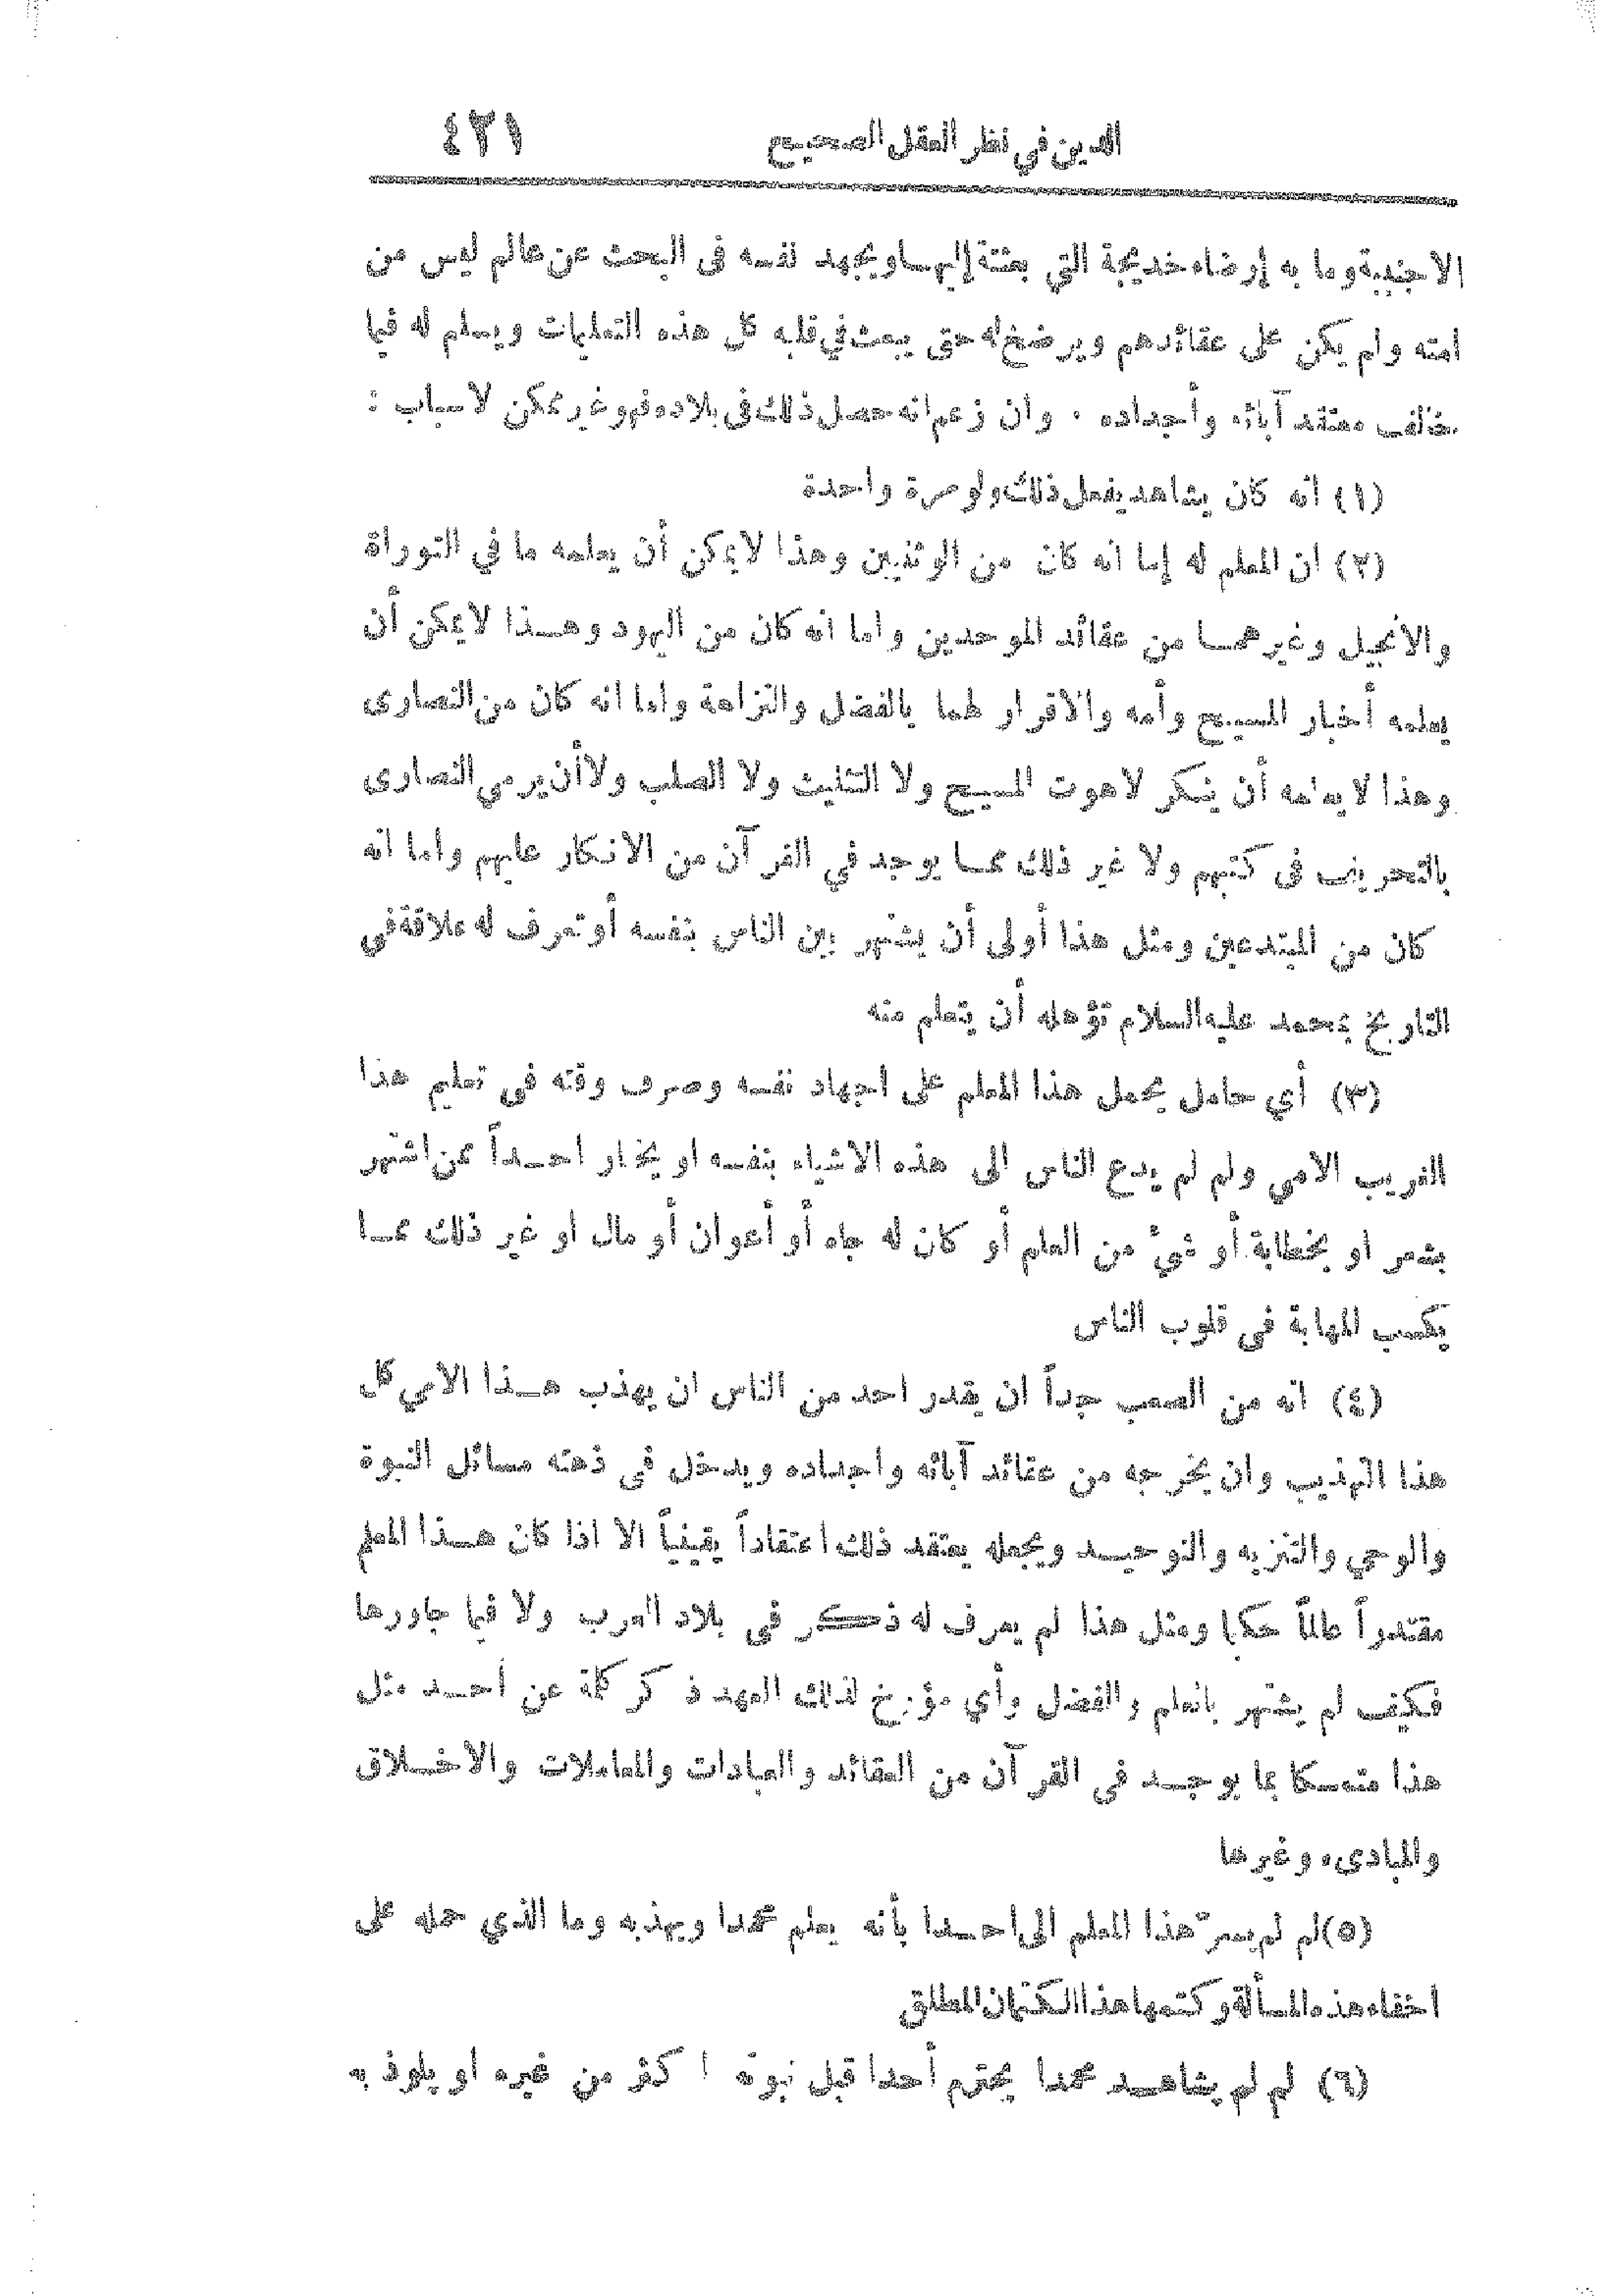 الدين في نظر العقل الصحيح ٤٢١
الاجنبية وما به إرضاء خديجة التي بعثته إليهــا ويجهد نفسه فى البحث عن عالم ليس من
امته ولم يكن على عقائدهم ويرضخ له حتى يبعث في قلبه كل هذه التعليمات ويعلم له فيما
يخالف معتقد آبائه وأجداده . وان زعم انه حصل ذلك فى بلاده فهو غير ممكن لاسباب :
(١) انه كان يشاهد يفعل ذلك ولو مرة واحدة
(٢) ان المعلم له إما انه كان من الوثنيين وهذا لا يمكن أن يعلمه ما في التوراة
والانجيل وغيرهمــا من عقائد الموحدين واما انه كان من اليهود وهــذا لا يمكن أن
يعلمه أخبار المسيح وأمه والاقرار لهما بالفضل والنزاهة واما انه كان من النصارى
وهذا لا يعلمه أن ينكر لاهوت المسيح ولا التثليث ولا الصلب ولا أن يرمي النصارى
بالتحريف فى كتبهم ولا غير ذلك ممــا يوجد في القرآن من الانكار عليهم واما انه
كان من المبتدعين ومثل هذا أولى أن يشتهر بين الناس بنفسه أو تعرف له علاقة في
التاريخ بمحمد عليه السلام تؤهله أن يتعلم منه
(٣) أي حامل يحمل هذا المعلم على اجهاد نفسه وصرف وقته فى تعليم هذا
الغريب الامي ولم لم يدع الناس الى هذه الاشياء بنفسه او يختار احــداً ممن اشتهر
بشعر او بخطابة أو شيء من العلم أو كان له جاه أو أعوان أو مال او غير ذلك ممــا
يكسب المهابة فى قلوب الناس
(٤) انه من الصعب جداً ان يقدر احد من الناس ان يهذب هــذا الامي كل
هذا التهذيب وان يخرجه من عقائد آبائه واجداده ويدخل فى ذهنه مسائل النبوة
والوحي والتنزيه والتوحيــد ويجعله يعتقد ذلك اعتقاداً يقينياً الا اذا كان هــذا المعلم
مقتدراً عالماً حكيما ومثل هذا لم يعرف له ذكر فى بلاد العرب ولا فيما جاورها
فكيف لم يشتهر بالعلم والفضل وأي مؤرخ لذلك العهد ذكر كلمة عن أحــد مثل
هذا متمسكا بما يوجــد فى القرآن من العقائد والعبادات والمعاملات والاخــلاق
والمبادىء وغيرها
(٥) لم لم يسرّ هذا المعلم الى احــد بأنه يعلم محمدا ويهذبه وما الذي حمله على
اخفاء هذه المسألة وكتمها هذا الكتمان المطلق
(٦) لم لم يشاهــد محمدا يحترم أحدا قبل نبوته اكثر من غيره او يلوذ به